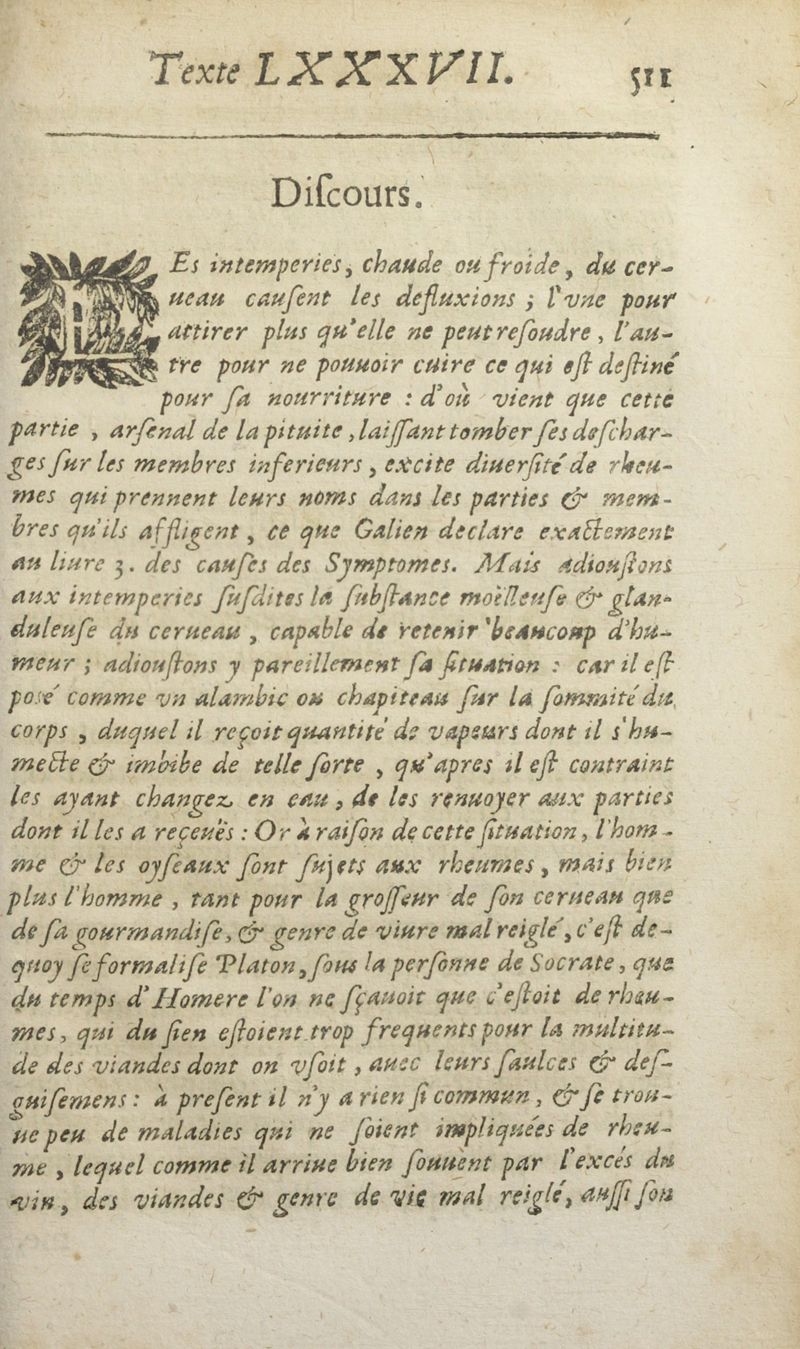 Texte LXXXVII. 511
Diſcours.
LEs intemperies, chaude ou froide, du cer-
ueau cauſent les defluxions ; l'vne pour
attirer plus qu'elle ne peut reſoudre, l'au-
tre pour ne pouuoir cuire ce qui eſt deſtiné
pour ſa nourriture : d'où vient que cette
partie , arſenal de la pituite , laiſſant tomber ſes deſchar-
ges ſur les membres inferieurs , excite diuerſité de rheu-
mes qui prennent leurs noms dans les parties & mem-
bres qu'ils affligent , ce que Galien declare exactement
au liure 3. des cauſes des Symptomes. Mais adiouſtons
aux intemperies ſuſdites la ſubſtance moëlleuſe & glan-
duleuſe du cerueau , capable de retenir beaucoup d'hu-
meur ; adiouſtons y pareillement ſa ſituation : car il eſt
posé comme vn alambic ou chapiteau ſur la ſommité du
corps , duquel il reçoit quantité de vapeurs dont il s'hu-
mecte & imbibe de telle ſorte , qu'apres il eſt contraint
les ayant changez en eau , de les renuoyer aux parties
dont il les a reçeuës : Or à raiſon de cette ſituation, l'hom-
me & les oyſeaux ſont ſujets aux rheumes, mais bien
plus l'homme , tant pour la groſſeur de ſon cerueau que
de ſa gourmandiſe, & genre de viure mal reiglé, c'eſt de-
quoy ſe formaliſe Platon, ſous la perſonne de Socrate, que
du temps d'Homere l'on ne ſçauoit que c'eſtoit de rheu-
mes, qui du ſien eſtoient trop frequents pour la multitu-
de des viandes dont on vſoit , auec leurs ſaulces & deſ-
guiſemens : à preſent il n'y a rien ſi commun , & ſe trou-
ue peu de maladies qui ne ſoient impliquées de rheu-
me , lequel comme il arriue bien ſouuent par l'excés du
vin, des viandes & genre de vie mal reiglé, auſſi ſon